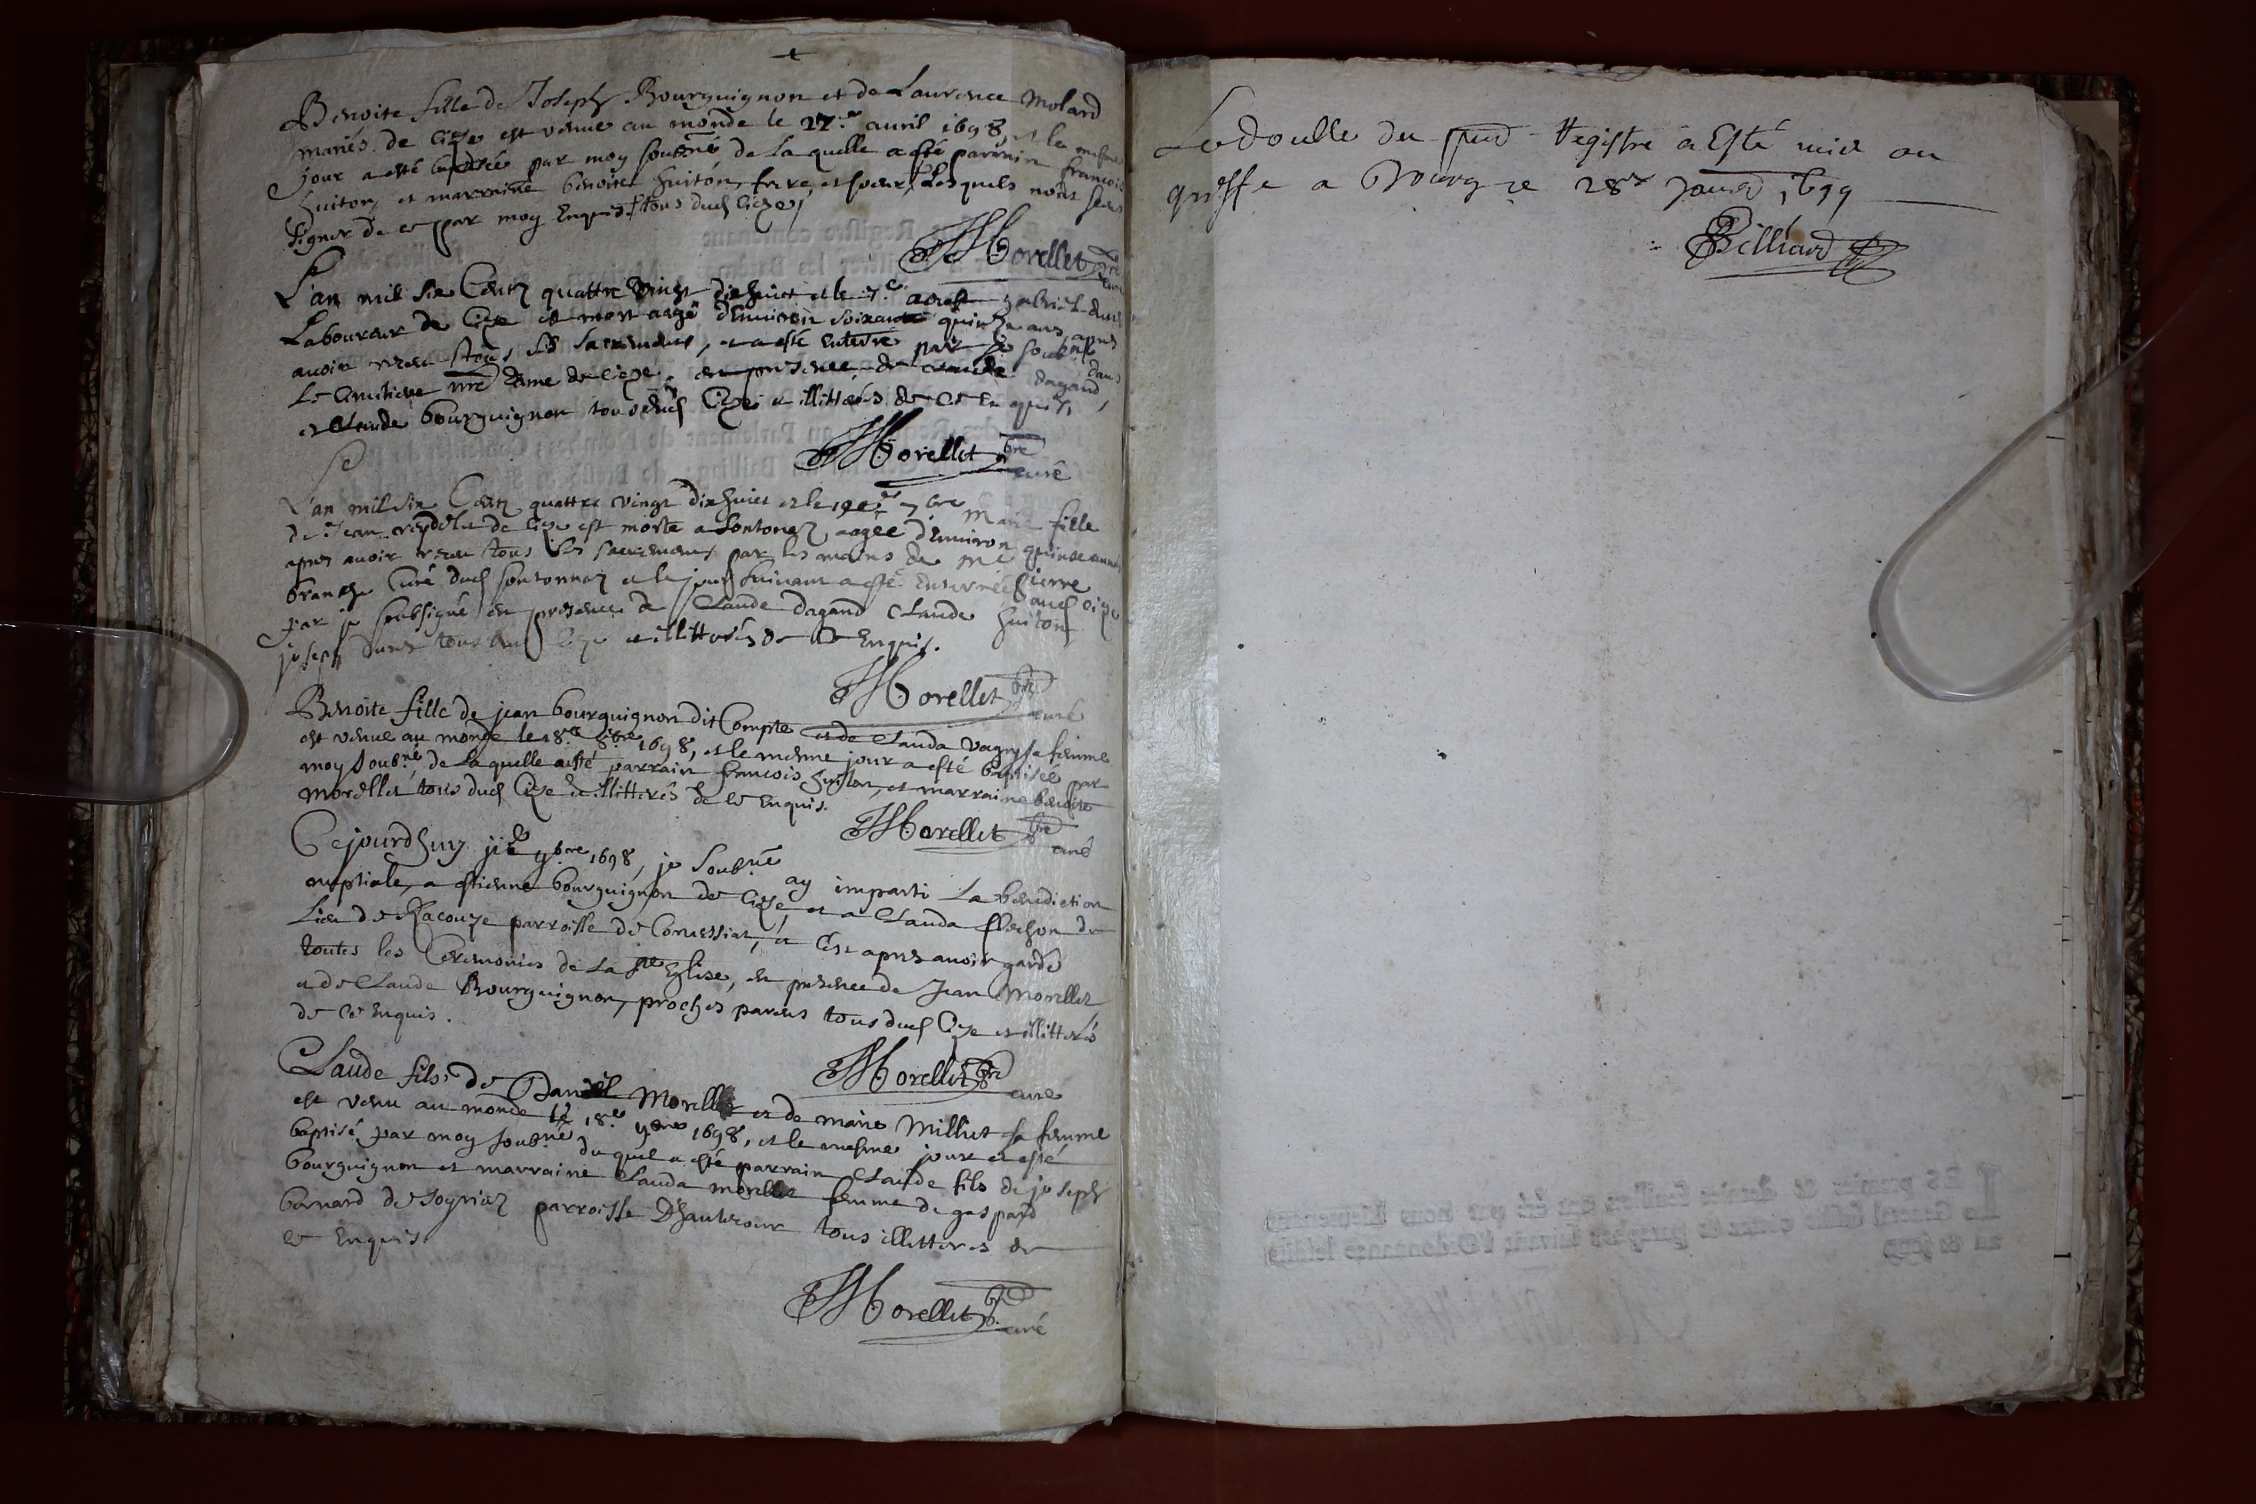 Benoite fille de Joseph Bourguignon et de Laurence Molard
mariés de Cize est venue au monde le 27.e avril 1698, et le mesme
jour a esté baptisée par moy soubné de la quelle a esté parrain françois
huiton, et marraine benoite huiton, frere et soeur, lesquels nont sceu
signer de ce par moy Enquis, tous dud Cize,
Morellet pbre curé
L'an mil six Cents quattre vingt dixhuict et le 7.e aoust gabriel
Laboureur de Cize est mort aagé d'Environ soixante quinze ans, apres
avoir receu tous les sacremens, et a esté enterré par je soubné dans
Le Cimitiere nre Dame de Cize, en presence de Claude dagand,
et Claude bourguignon tous dud Cize et illitterés de ce Enquis,
Morellet pbre curé
L'an mil six Cents quattre vingt dix huict et le 7bre Marie fille
de Jean reydelet de Cize est morte a Sontonaz aagée d'Environ quinse années
apres avoir receu tous les sacremens par les mains de mre pierre
branche Curé dud sontonnaz et le jour suivant a esté enterrée aud Cize
par je soubsigné en presence de Claude dagand Claude huiton
joseph tous dud Cize et illitterés de ce Enquis.
Morellet pbre curé
Benoite fille de jean bourguignon dit Compte et de Clauda vagny sa femme
est venue au monde le 18.e 8bre 1698, et le mesme jour a esté baptisée par
moy soubné, de la quelle a esté parrain françois huiton, et marraine benoite
morellet tous dud Cize et illitterés de ce Enquis.
Morellet pbre curé
Cejourdhuy 9bre 1698, je soubné ay imparti La benediction
nuptiale, a estienne bourguignon de Cize, et a Clauda flechon du
Lieu de Racouze parroisse de Corvessiat, et c'est apres avoir gardé
toutes les Ceremonies de La ste Eglise, en presence de Jean Morellet
et de Claude Bourguignon, proches parens tous dud Cize et illitterés
de ce Enquis.
Morellet pbre curé
Claude fils de Daniel Morellet et de marie Milliet sa femme
est venu au monde le 18.e 9bre 1698, et le mesme jour a esté
baptisé par moy soubné, du quel a esté parrain Claude fils de joseph
bourguignon et marraine Clauda morellet femme de gaspard
bernard de sogniaz parroisse D'hautecour tous illitterés de
ce Enquis.
Morellet pbre curé
Le double du pnt Registre a Esté mis au
greffe a Bourg ce 28e Janvr 1699
Billiard